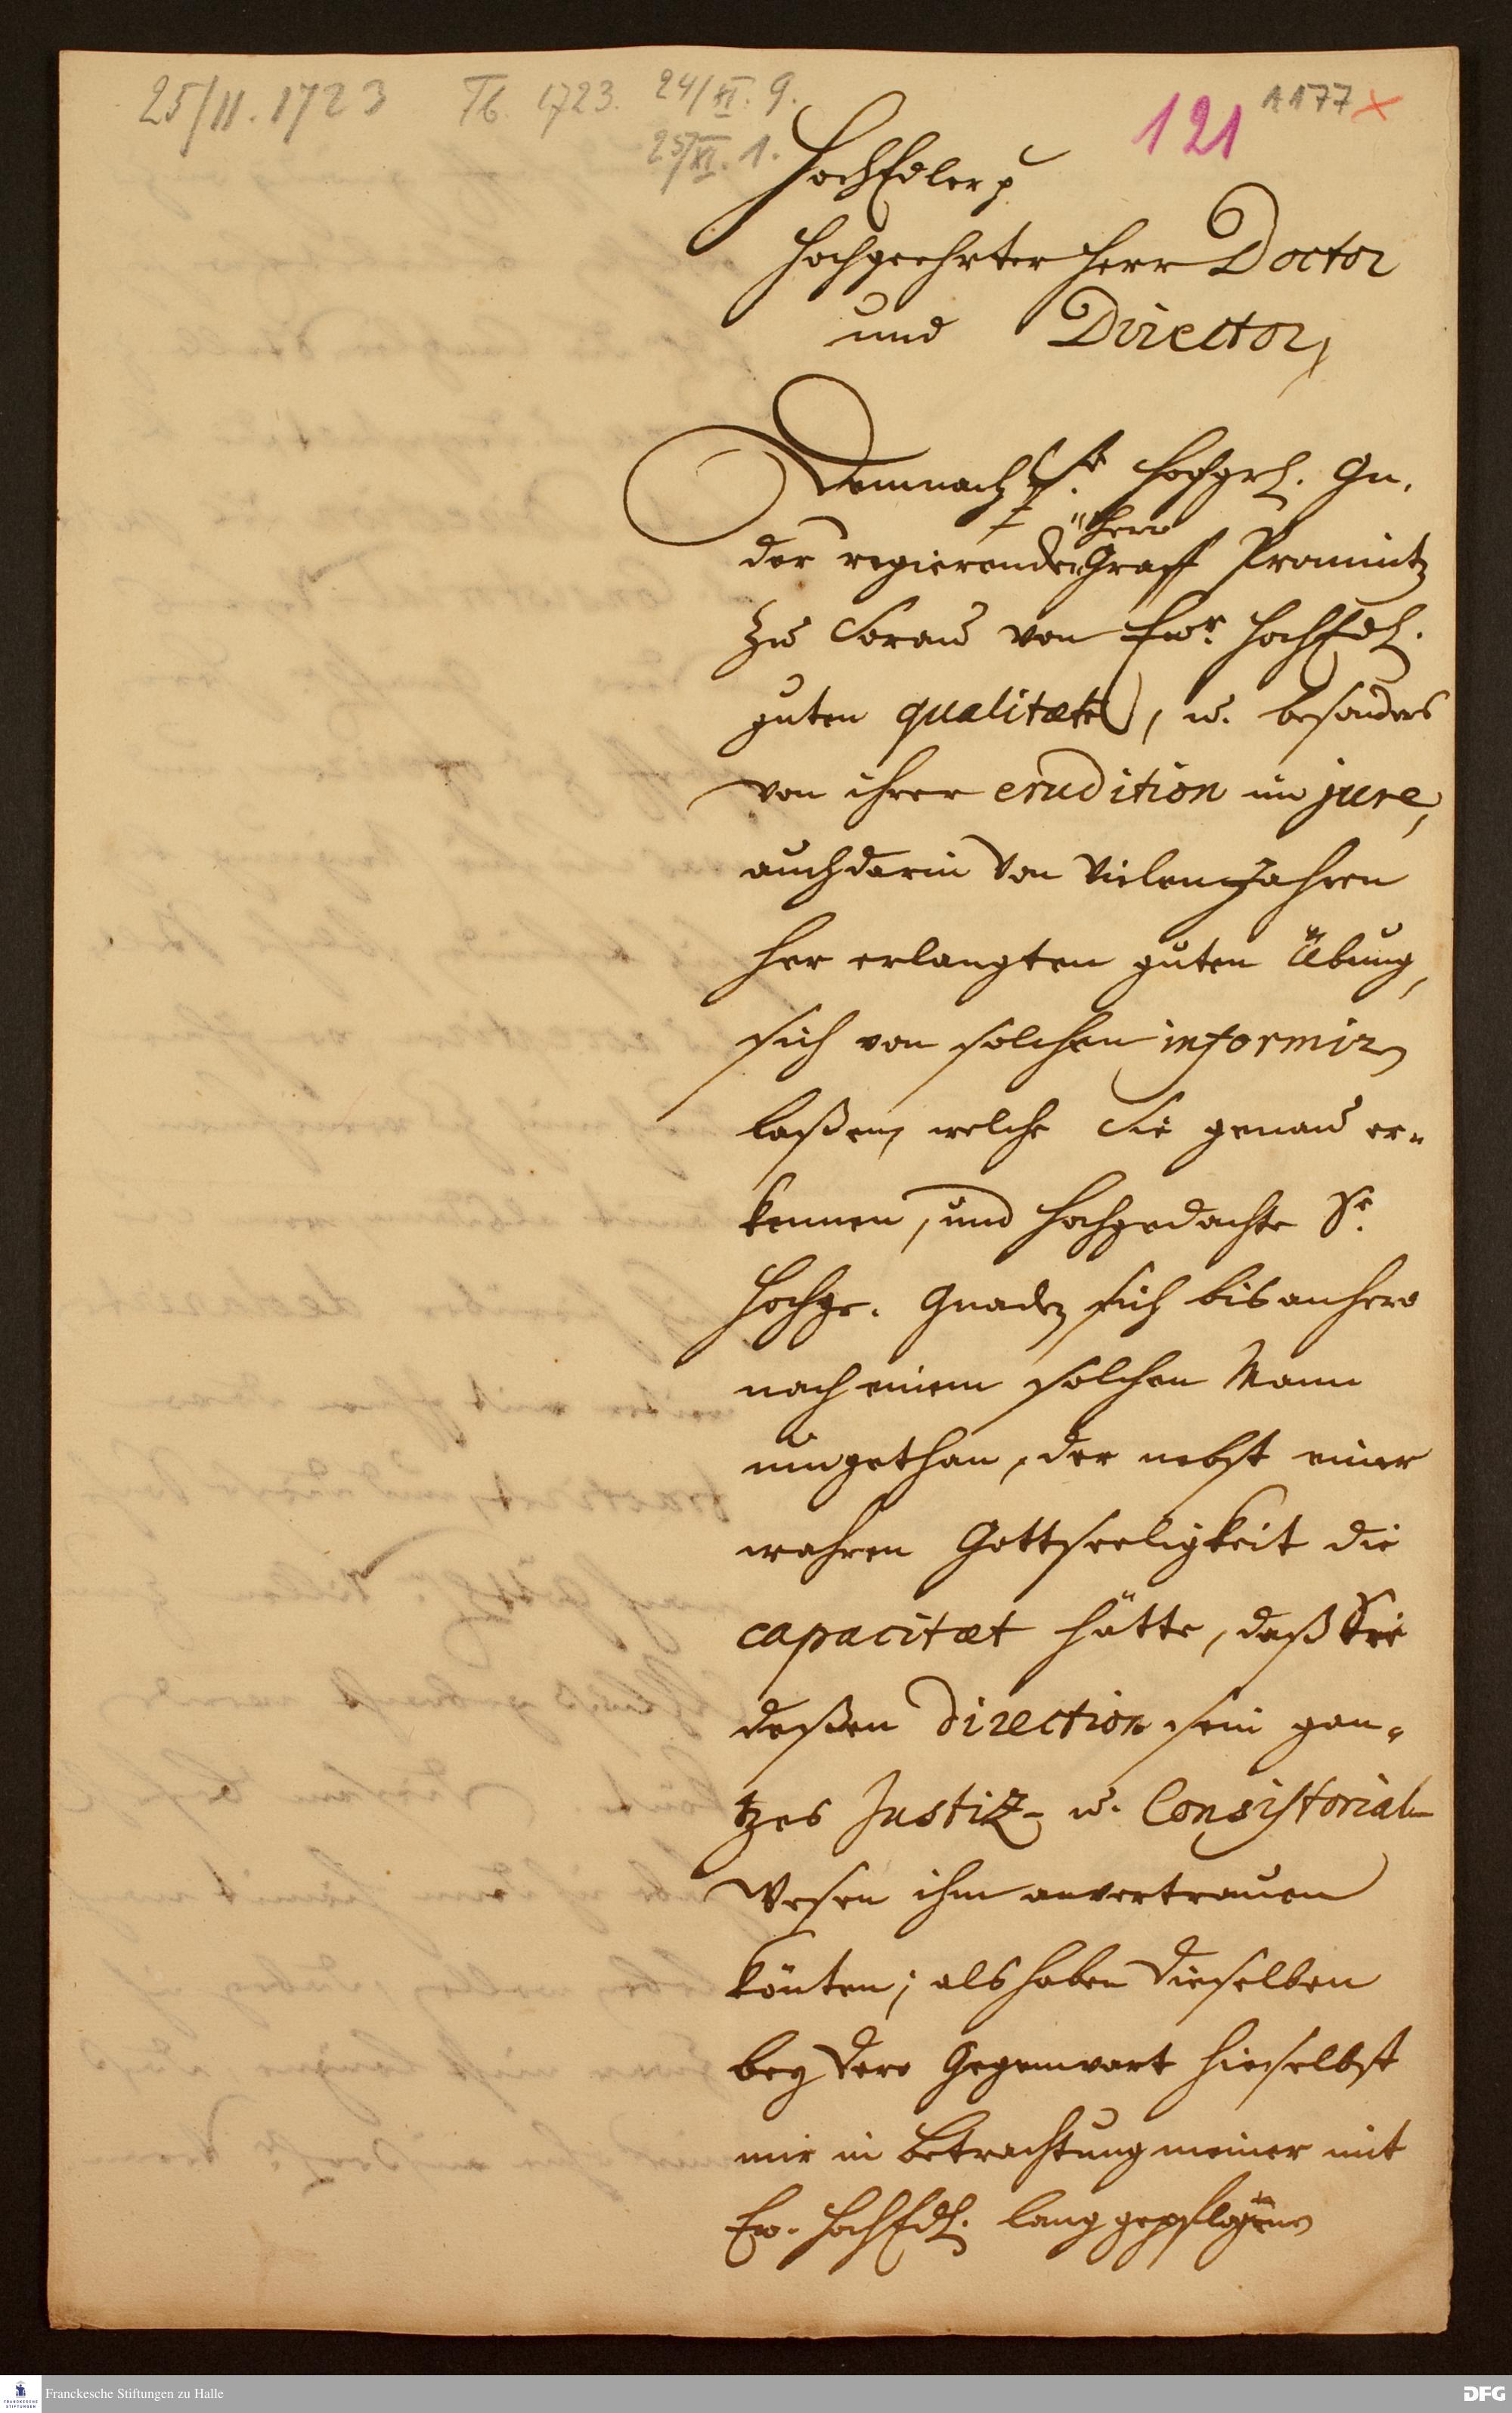 25/11. 1723 Tb. 1723. 24/XI. 9.
25/XI. 1.
121
A 177
HochEdler p
Hochgeehrter Herr Doctor
und Director,
Demnach Se. Hochgrl. Gn.
der regierende Herr Graff Promnitz
zu Sorau von Ewr. HochEdl.
guten qualitæten, u. besonders
von ihrer erudition in jure,
auch darin von vielen Jahren
her erlangten guten Übung,
sich von solchen informiren
laßen, welche Sie genau er-
kennen, und Hochgedachte Se.
Hochgr. Gnaden sich bis anhero
nach einem solchen Mann
umgethan, der nebst einer
wahren Gottseeligkeit die
capacitæt hätte, daß Sie
deßen direction sein gan-
tzes Justiz- u. Consistorial-
Wesen ihm anvertrauen
könten; als haben Dieselben
bey dero Gegenwart hieselbst
mir in Betrachtung meiner mit
Ew. HochEdl. lang gepflogenen
Franckesche Stiftungen zu Halle
FRANCKESCHE STIFTUNGEN
DFG